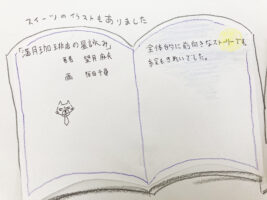 スイーツのイラストもありました
「満月珈琲店の星詠み」
著者 望月麻衣
画 桜田千尋
全体的に前向きなストーリーでも
絵もきれいでした。